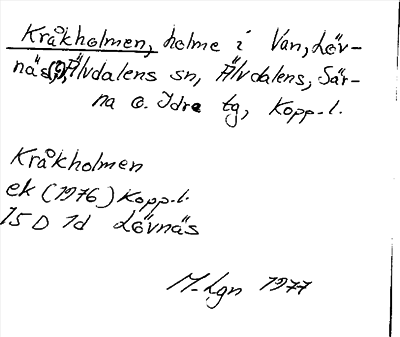 Kråkholmen, holme i Van, Löv-
näs(?), Älvdalens sn, Älvdalens, Sär-
na o. Idre tg, Kopp. l.
Kråkholmen
ek (1976) Kopp. l.
15 D 1d Lövnäs
M-Lgn 1977